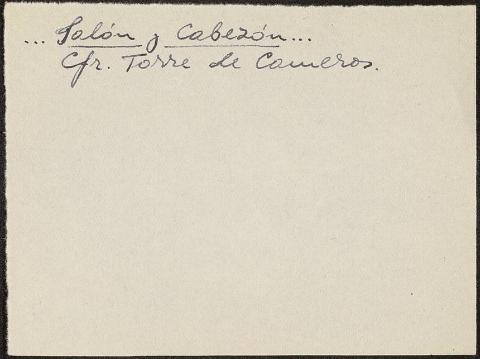 ... Jalón y Cabezón...
Cfr. Torre de Cameros.